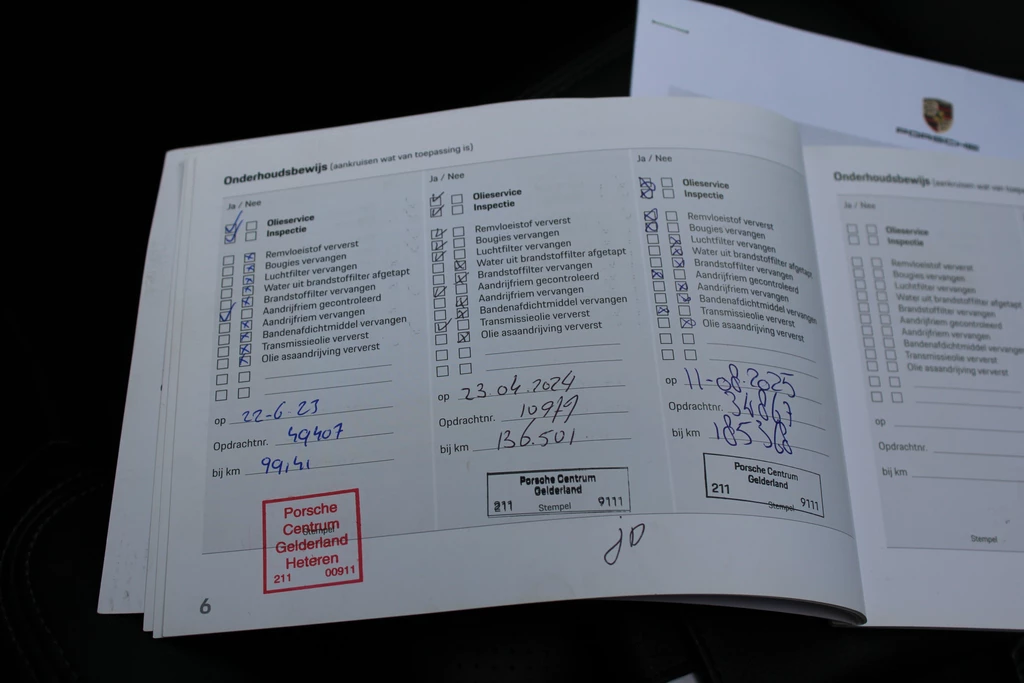 PORSCHE
Onderhoudsbewijs (aankruisen wat van toepassing is)
Ja / Nee
Olieservice
Inspectie
Remvloeistof ververst
Bougies vervangen
Luchtfilter vervangen
Water uit brandstoffilter afgetapt
Brandstoffilter vervangen
Aandrijfriem gecontroleerd
Aandrijfriem vervangen
Bandenafdichtmiddel vervangen
Transmissieolie ververst
Olie asaandrijving ververst
op 22-6-23
Opdrachtnr. 49407
bij km
Porsche
Centrum
Gelderland
Heteren
Stempel
211 00911
6
Ja / Nee
Olieservice
Inspectie
Remvloeistof ververst
Bougies vervangen
Luchtfilter vervangen
Water uit brandstoffilter afgetapt
Brandstoffilter vervangen
Aandrijfriem gecontroleerd
Aandrijfriem vervangen
Bandenafdichtmiddel vervangen
Transmissieolie ververst
Olie asaandrijving ververst
op 23.04.2024
Opdrachtnr.
bij km 136.501
Porsche Centrum
Gelderland
211 Stempel 9111
Ja / Nee
Olieservice
Inspectie
Remvloeistof ververst
Bougies vervangen
Luchtfilter vervangen
Water uit brandstoffilter afgetapt
Brandstoffilter vervangen
Aandrijfriem gecontroleerd
Aandrijfriem vervangen
Bandenafdichtmiddel vervangen
Transmissieolie ververst
Olie asaandrijving ververst
op 11-08-2025
Opdrachtnr. 34867
bij km
Porsche Centrum
Gelderland
211 Stempel 9111
Onderhoudsbewijs (aankruisen wat van toepa
Ja / Nee
Olieservice
Inspectie
Remvloeistof ververst
Bougies vervangen
Luchtfilter vervangen
Water uit brandstoffilter afgetapt
Brandstoffilter vervangen
Aandrijfriem gecontroleerd
Aandrijfriem vervangen
Bandenafdichtmiddel vervangen
Transmissieolie ververst
Olie asaandrijving ververst
op
Opdrachtnr.
bij km
Stempel